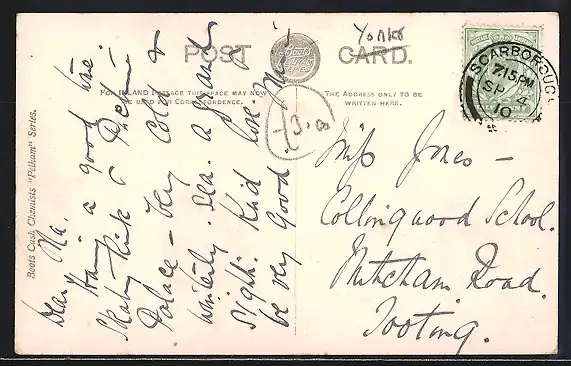 Yorks
POST CARD.
FOR INLAND POSTAGE THIS SPACE MAY NOW
BE USED FOR CORRESPONDENCE.
THE ADDRESS ONLY TO BE
WRITTEN HERE.
Boots Cash Chemists "Pelham" Series.
SCARBOROUGH
7.15 PM
SP 4
10
Dear Ma.
Having a good time.
Skating Rink &
Palace - Very Cold &
wintery. Sea. a grand
Sight. Kind love.
be very Good
Miss Jones -
Collingwood School.
Mitcham Road.
Tooting.